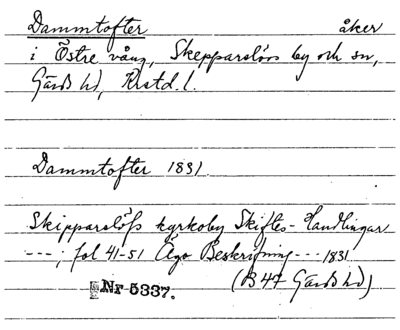 Dammtofter åker
i Östre vång, Skepparslövs by och sn,
Gärds hd, Krstd. l.
Dammtofter 1831.
Skipparslöfs kyrkoby Skiftes-Handlingar
---; fol 41-51 Ägo Beskrifning --- 1831
(B 47 Gärds hd)
Nr 5337.